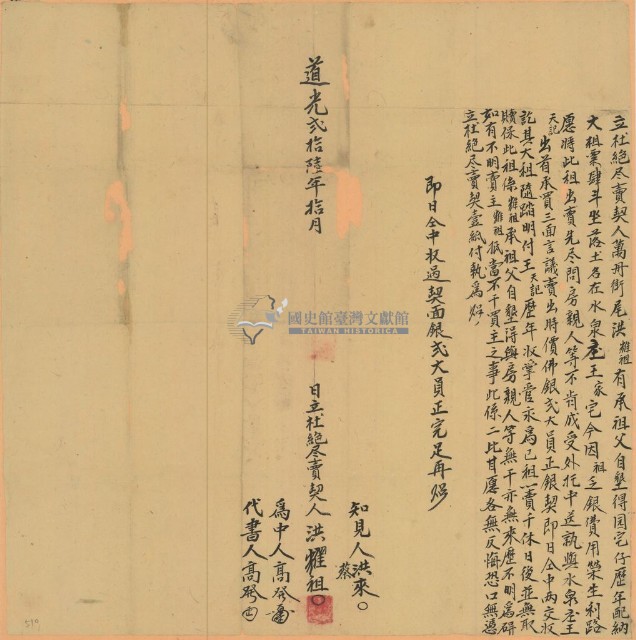 立杜絕尽賣契人萬丹街尾洪耀祖有承祖父自墾得园宅仔歷年配納
大租粟肆斗坐落土名在水泉庄王家宅今因祖乏銀費用榮生利路
愿將此租出賣先尽問房親人等不肯成受外托中送執與水泉庄王
天記出首承買三面言議賣出時價佛銀弍大員正銀契即日仝中両交收
訖其大租隨踏明付王天記歷年收掌管永為己祖一賣千休日後並無取
贖保此租係耀祖承祖父自墾得與房親人等無干亦無來歷不明為碍
如有不明賣主耀祖抵當不干買主之事此係二比甘愿各無反悔恐口無憑
立杜絕尽賣契壹紙付執為炤
即日仝中収過契面銀弍大員正完足再炤
知見人洪來
蔡
為中人高
日立杜絕尽賣契人洪耀祖
代書人高
道光弍拾陸年拾月
國史館臺灣文獻館
TAIWAN HISTORICA